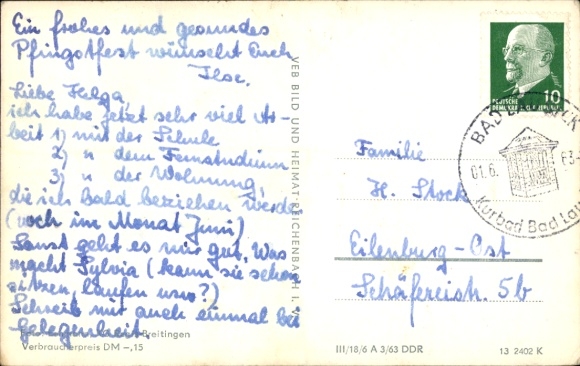 Ein frohes und gesundes
Pfingstfest wünscht Euch
Ilse.
Liebe Helga,
ich habe jetzt sehr viel Ar-
beit 1) mit der Schule
2) " dem Fernstudium
3) " der Wohnung,
die ich bald beziehen werde
(noch im Monat Juni)
Sonst geht es mir gut. Was
macht Sylvia (kann sie schon
sitzen, laufen usw?)
Schreib mir auch einmal bei
Gelegenheit.
Breitingen
Verbraucherpreis DM -,15
VEB BILD UND HEIMAT REICHENBACH I. V.
10
DEUTSCHE
DEMOKRATISCHE REPUBLIK
BAD
01.6. 63-
Kurbad Bad
Familie
H. Stock
Eilenburg-Ost
Schäfereistr. 5b
III/18/6 A 3/63 DDR
13 2402 K